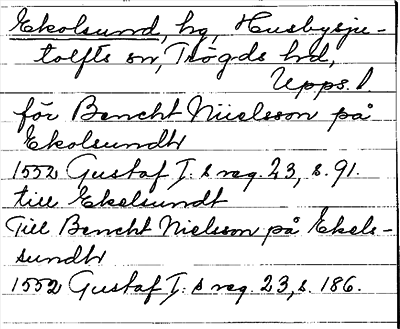 Ekolsund, hg, Husbysju-
tolfts sn, Trögds hd,
Upps. l.
för Bencht Niielsson på
Ekolsundtt
1552 Gustaf I:s reg. 23, s. 91.
till Ekelsundt
Till Bencht Nielsson på Ekels-
sundtt
1552 Gustaf I:s reg. 23, s. 186.